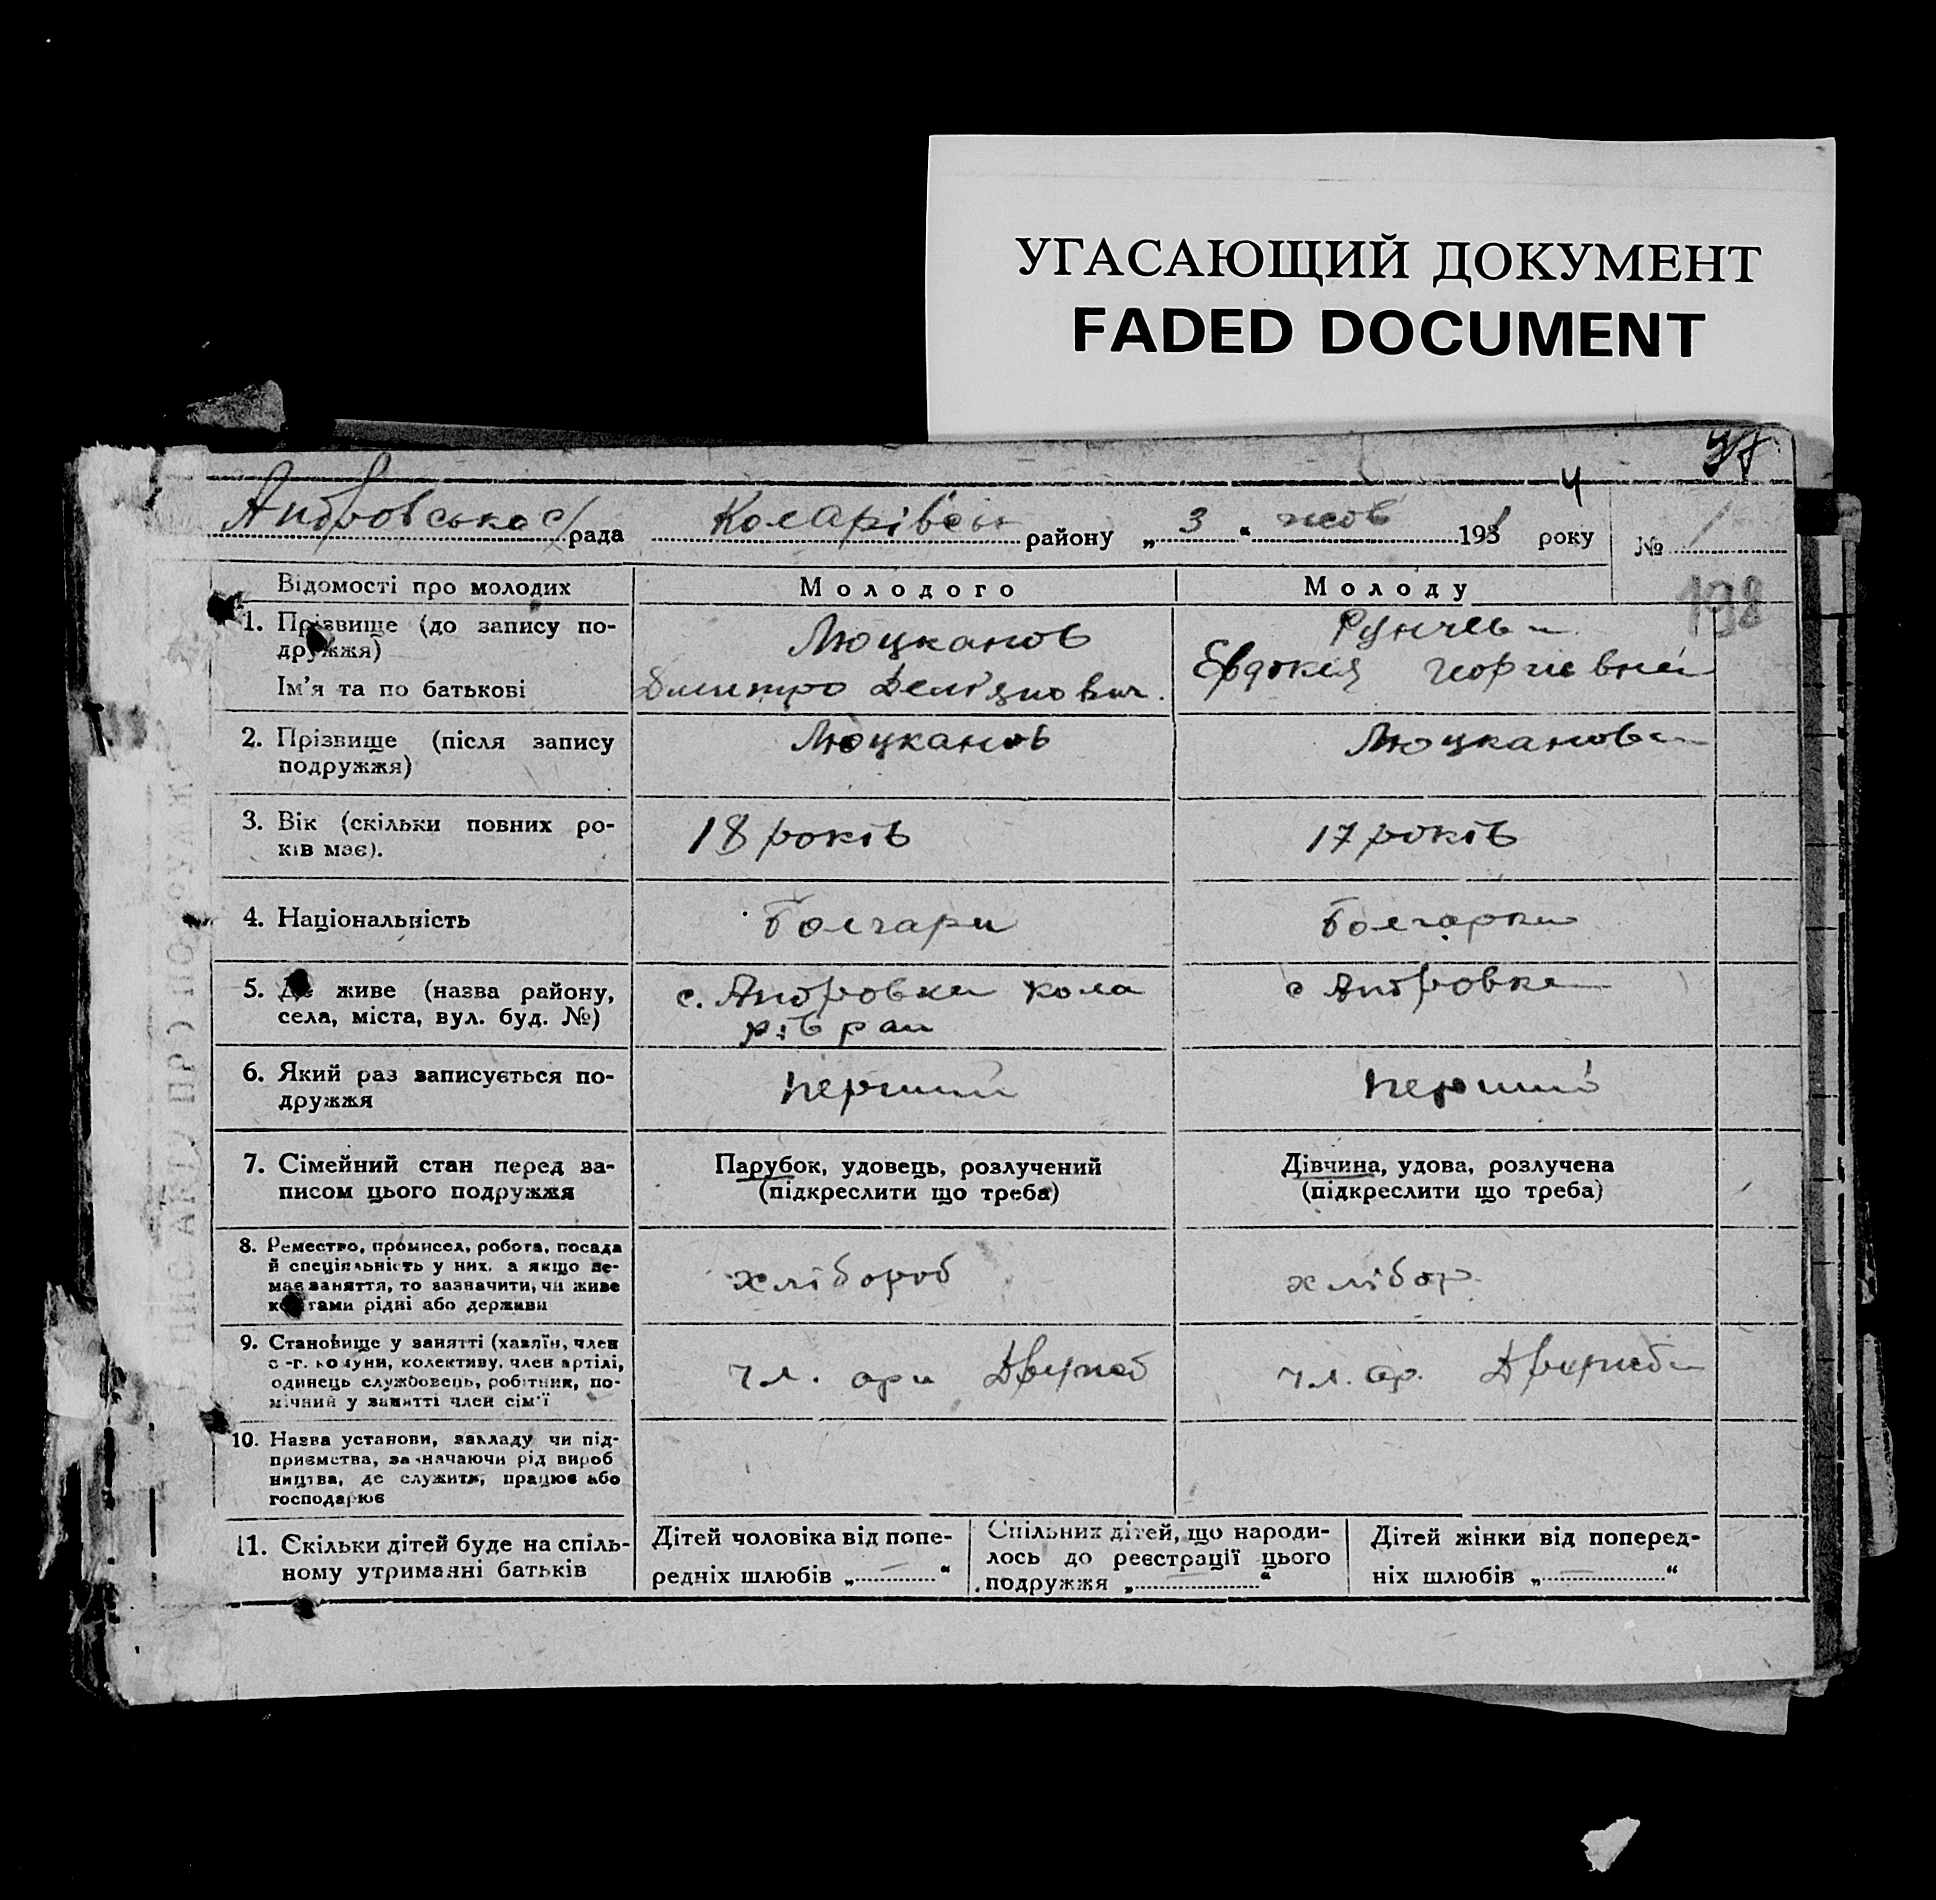 УГАСАЮЩИЙ ДОКУМЕНТ
FADED DOCUMENT
Андровська с/рада Коларівськ району „ 3 “ жов 193 4 року № 1
198
Відомості про молодих Молодого Молоду
1. Прізвище (до запису по-
дружжя) Люцканов Рунчева
Ім'я та по батькові Дмитро Дем'янович. Евдокия Георгиевна
2. Прізвище (після запису
подружжя) Люцканов Люцканова
3. Вік (скільки повних ро-
ків має). 18 років 17 років
4. Національність Болгари Болгарка
5. Де живе (назва району,
села, міста, вул. буд. №) с. Андровка Кола
рів ран с Андровка
6. Який раз записується по-
дружжя перший перший
7. Сімейний стан перед за-
писом цього подружжя
Парубок, удовець, розлучений
(підкреслити що треба)
Дівчина, удова, розлучена
(підкреслити що треба)
8. Ремество, промисел, робота, посада
й спеціяльність у них, а якщо не-
має заняття, то зазначити, чи живе
коштами рідні або держави
хлібороб хлібор.
9. Становище у занятті (хазяїн, член
с.-г. комуни, колективу, член артілі,
одинець службовець, робітник, по-
мічний у занятті член сім'ї
чл. чл. ар.
10. Назва установи, закладу чи під-
приємства, зазначаючи рід вироб
ництва, де служить, працює або
господарює
11. Скільки дітей буде на спіль-
ному утриманні батьків
Дітей чоловіка від попе-
редніх шлюбів „ — “
Спільних дітей, що народи-
лось до реєстрації цього
подружжя „ — “
Дітей жінки від поперед-
ніх шлюбів „ — “